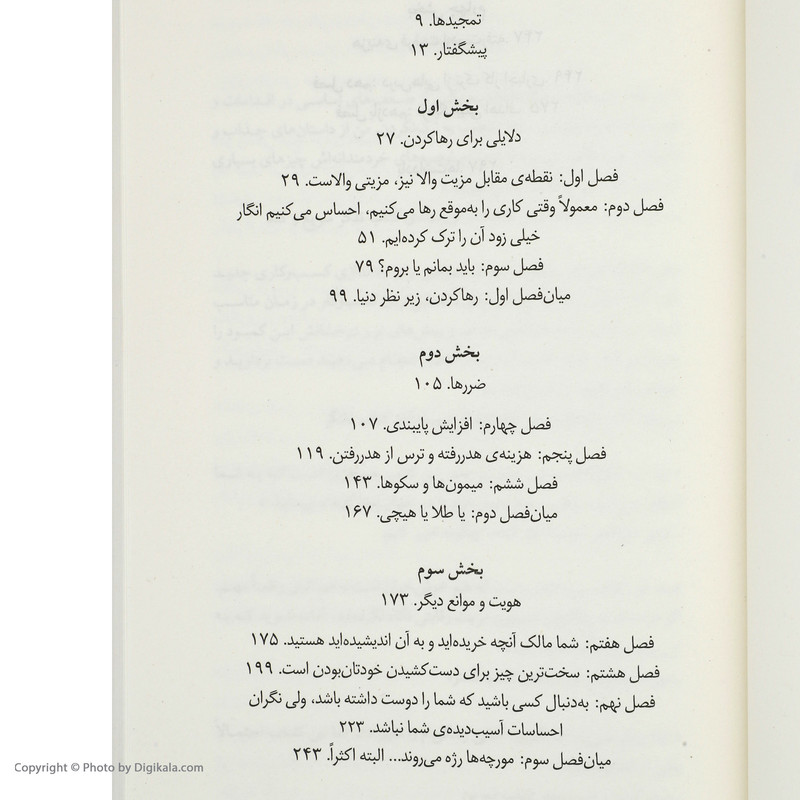 تمجیدها. ۹
پیشگفتار. ۱۳
بخش اول
دلایلی برای رهاکردن. ۲۷
فصل اول: نقطه‌ی مقابل مزیت والا نیز، مزیتی والاست. ۲۹
فصل دوم: معمولاً وقتی کاری را به‌موقع رها می‌کنیم، احساس می‌کنیم انگار
خیلی زود آن را ترک کرده‌ایم. ۵۱
فصل سوم: باید بمانم یا بروم؟ ۷۹
میان‌فصل اول: رهاکردن، زیر نظر دنیا. ۹۹
بخش دوم
ضررها. ۱۰۵
فصل چهارم: افزایش پایبندی. ۱۰۷
فصل پنجم: هزینه‌ی هدررفته و ترس از هدررفتن. ۱۱۹
فصل ششم: میمون‌ها و سکوها. ۱۴۳
میان‌فصل دوم: یا طلا یا هیچی. ۱۶۷
بخش سوم
هویت و موانع دیگر. ۱۷۳
فصل هفتم: شما مالک آنچه خریده‌اید و به آن اندیشیده‌اید هستید. ۱۷۵
فصل هشتم: سخت‌ترین چیز برای دست‌کشیدن خودتان‌بودن است. ۱۹۹
فصل نهم: به‌دنبال کسی باشید که شما را دوست داشته باشد، ولی نگران
احساسات آسیب‌دیده‌ی شما نباشد. ۲۲۳
میان‌فصل سوم: مورچه‌ها رژه می‌روند... البته اکثراً. ۲۴۳
Copyright © Photo by Digikala.com